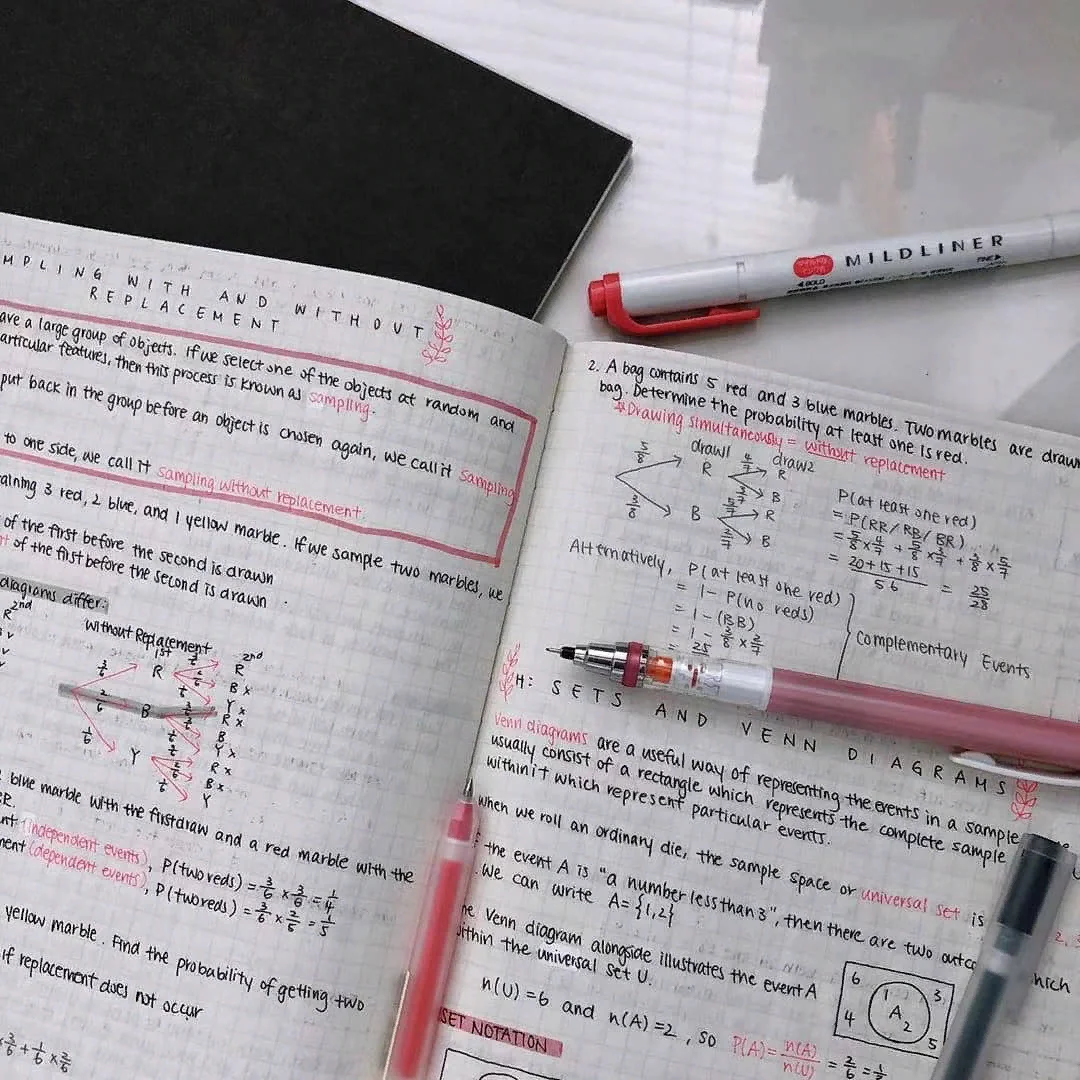 MPLING WITH AND WITHOUT
REPLACEMENT
ave a large group of objects. If we select one of the objects at random and
articular features, then this process is known as sampling.
put back in the group before an object is chosen again, we call it sampling
to one side, we call it sampling without replacement.
aining 3 red, 2 blue, and 1 yellow marble. If we sample two marbles, we
of the first before the second is drawn
of the first before the second is drawn.
diagrams differ:
2nd
R
Without Replacement
1st
2nd
3/6
R
R
B x
Y x
2/6
B
R x
B
Y x
1/6
Y
R x
B x
Y
blue marble with the first draw and a red marble with the
(independent events), P(two reds) = 3/6 x 3/6 = 1/4
ment (dependent events), P(two reds) = 3/6 x 2/5 = 1/5
yellow marble. Find the probability of getting two
if replacement does not occur
x 3/6 + 1/6 x 2/6
MILDLINER
BOLD
FINE
2. A bag contains 5 red and 3 blue marbles. Two marbles are drawn
bag. Determine the probability at least one is red.
*Drawing simultaneously = without replacment
draw1
draw2
5/8
R
4/7
R
3/7
B
3/8
B
5/7
R
2/7
B
P(at least one red)
= P(RR/RB/BR)
= 5/8 x 4/7 + 5/8 x 3/7 + 3/8 x 5/7
= 20+15+15/56 = 25/28
Alternatively, P(at least one red)
= 1- P(no reds)
= 1-(BB)
= 1- 3/8 x 2/7
= 25
Complementary Events
H: SETS AND VENN DIAGRAMS
Venn diagrams are a useful way of representing the events in a sample
usually consist of a rectangle which represents the complete sample
within it which represent particular events.
when we roll an ordinary die, the sample space or universal set is
the event A is "a number less than 3", then there are two outco
we can write A={1,2}
which
ne Venn diagram alongside illustrates the event A
within the universal set U.
6
1
3
A
4
2
5
n(U)=6 and n(A)=2, so P(A)= n(A)/n(U) = 2/6 = 1/3
SET NOTATION